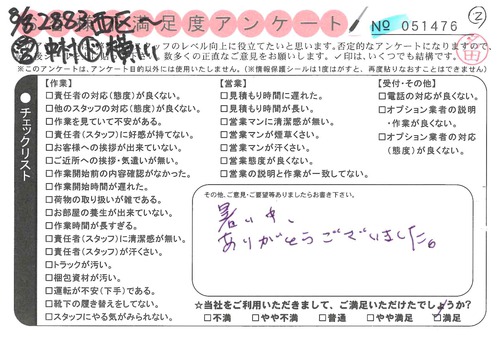 満足度アンケート
№ 051476
②
8/8 2883 西区〜
スタッフのレベル向上に役立てたいと思います。否定的なアンケートになりますので、
数多くの正直なご意見をお願いします。✓印は、いくつでも結構です。
※このアンケートは、アンケート目的以外には使用いたしません。(※情報保護シールは1度はがすと、再度貼りなおすことはできません)
チェックリスト
【作業】
□責任者の対応(態度)が良くない。
□他のスタッフの対応(態度)が良くない。
□作業を見ていて不安がある。
□責任者(スタッフ)に好感が持てない。
□お客様への挨拶が出来ていない。
□ご近所への挨拶・気遣いが無い。
□作業開始前の内容確認がなかった。
□作業開始時間が遅れた。
□荷物の取り扱いが雑である。
□お部屋の養生が出来ていない。
□作業時間が長すぎる。
□責任者(スタッフ)に清潔感が無い。
□責任者(スタッフ)が汗くさい。
□トラックが汚い。
□梱包資材が汚い。
□運転が不安(下手)である。
□靴下の履き替えをしてない。
□スタッフにやる気がみられない。
【営業】
□見積もり時間に遅れた。
□見積もり時間が長い。
□営業マンに清潔感が無い。
□営業マンが煙草くさい。
□営業マンが汗くさい。
□営業態度が良くない。
□営業の説明と作業が一致してない。
【受付・その他】
□電話の対応が良くない。
□オプション業者の説明
・作業が良くない。
□オプション業者の対応
(態度)が良くない。
その他、ご意見・ご要望等ありましたらお書き下さい。
暑い中、
ありがとうございました。
☆当社をご利用いただきまして、ご満足いただけたでしょうか?
□不満 □やや不満 □普通 □やや満足 □満足